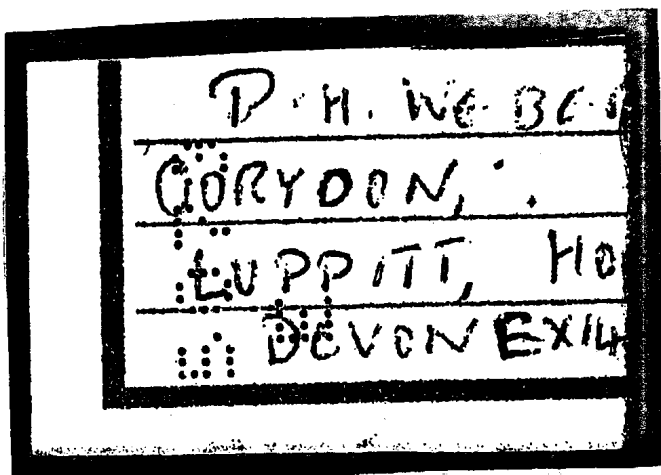 P. H. WEBB
CORYDON,
LUPPITT, HO
DEVON EX14